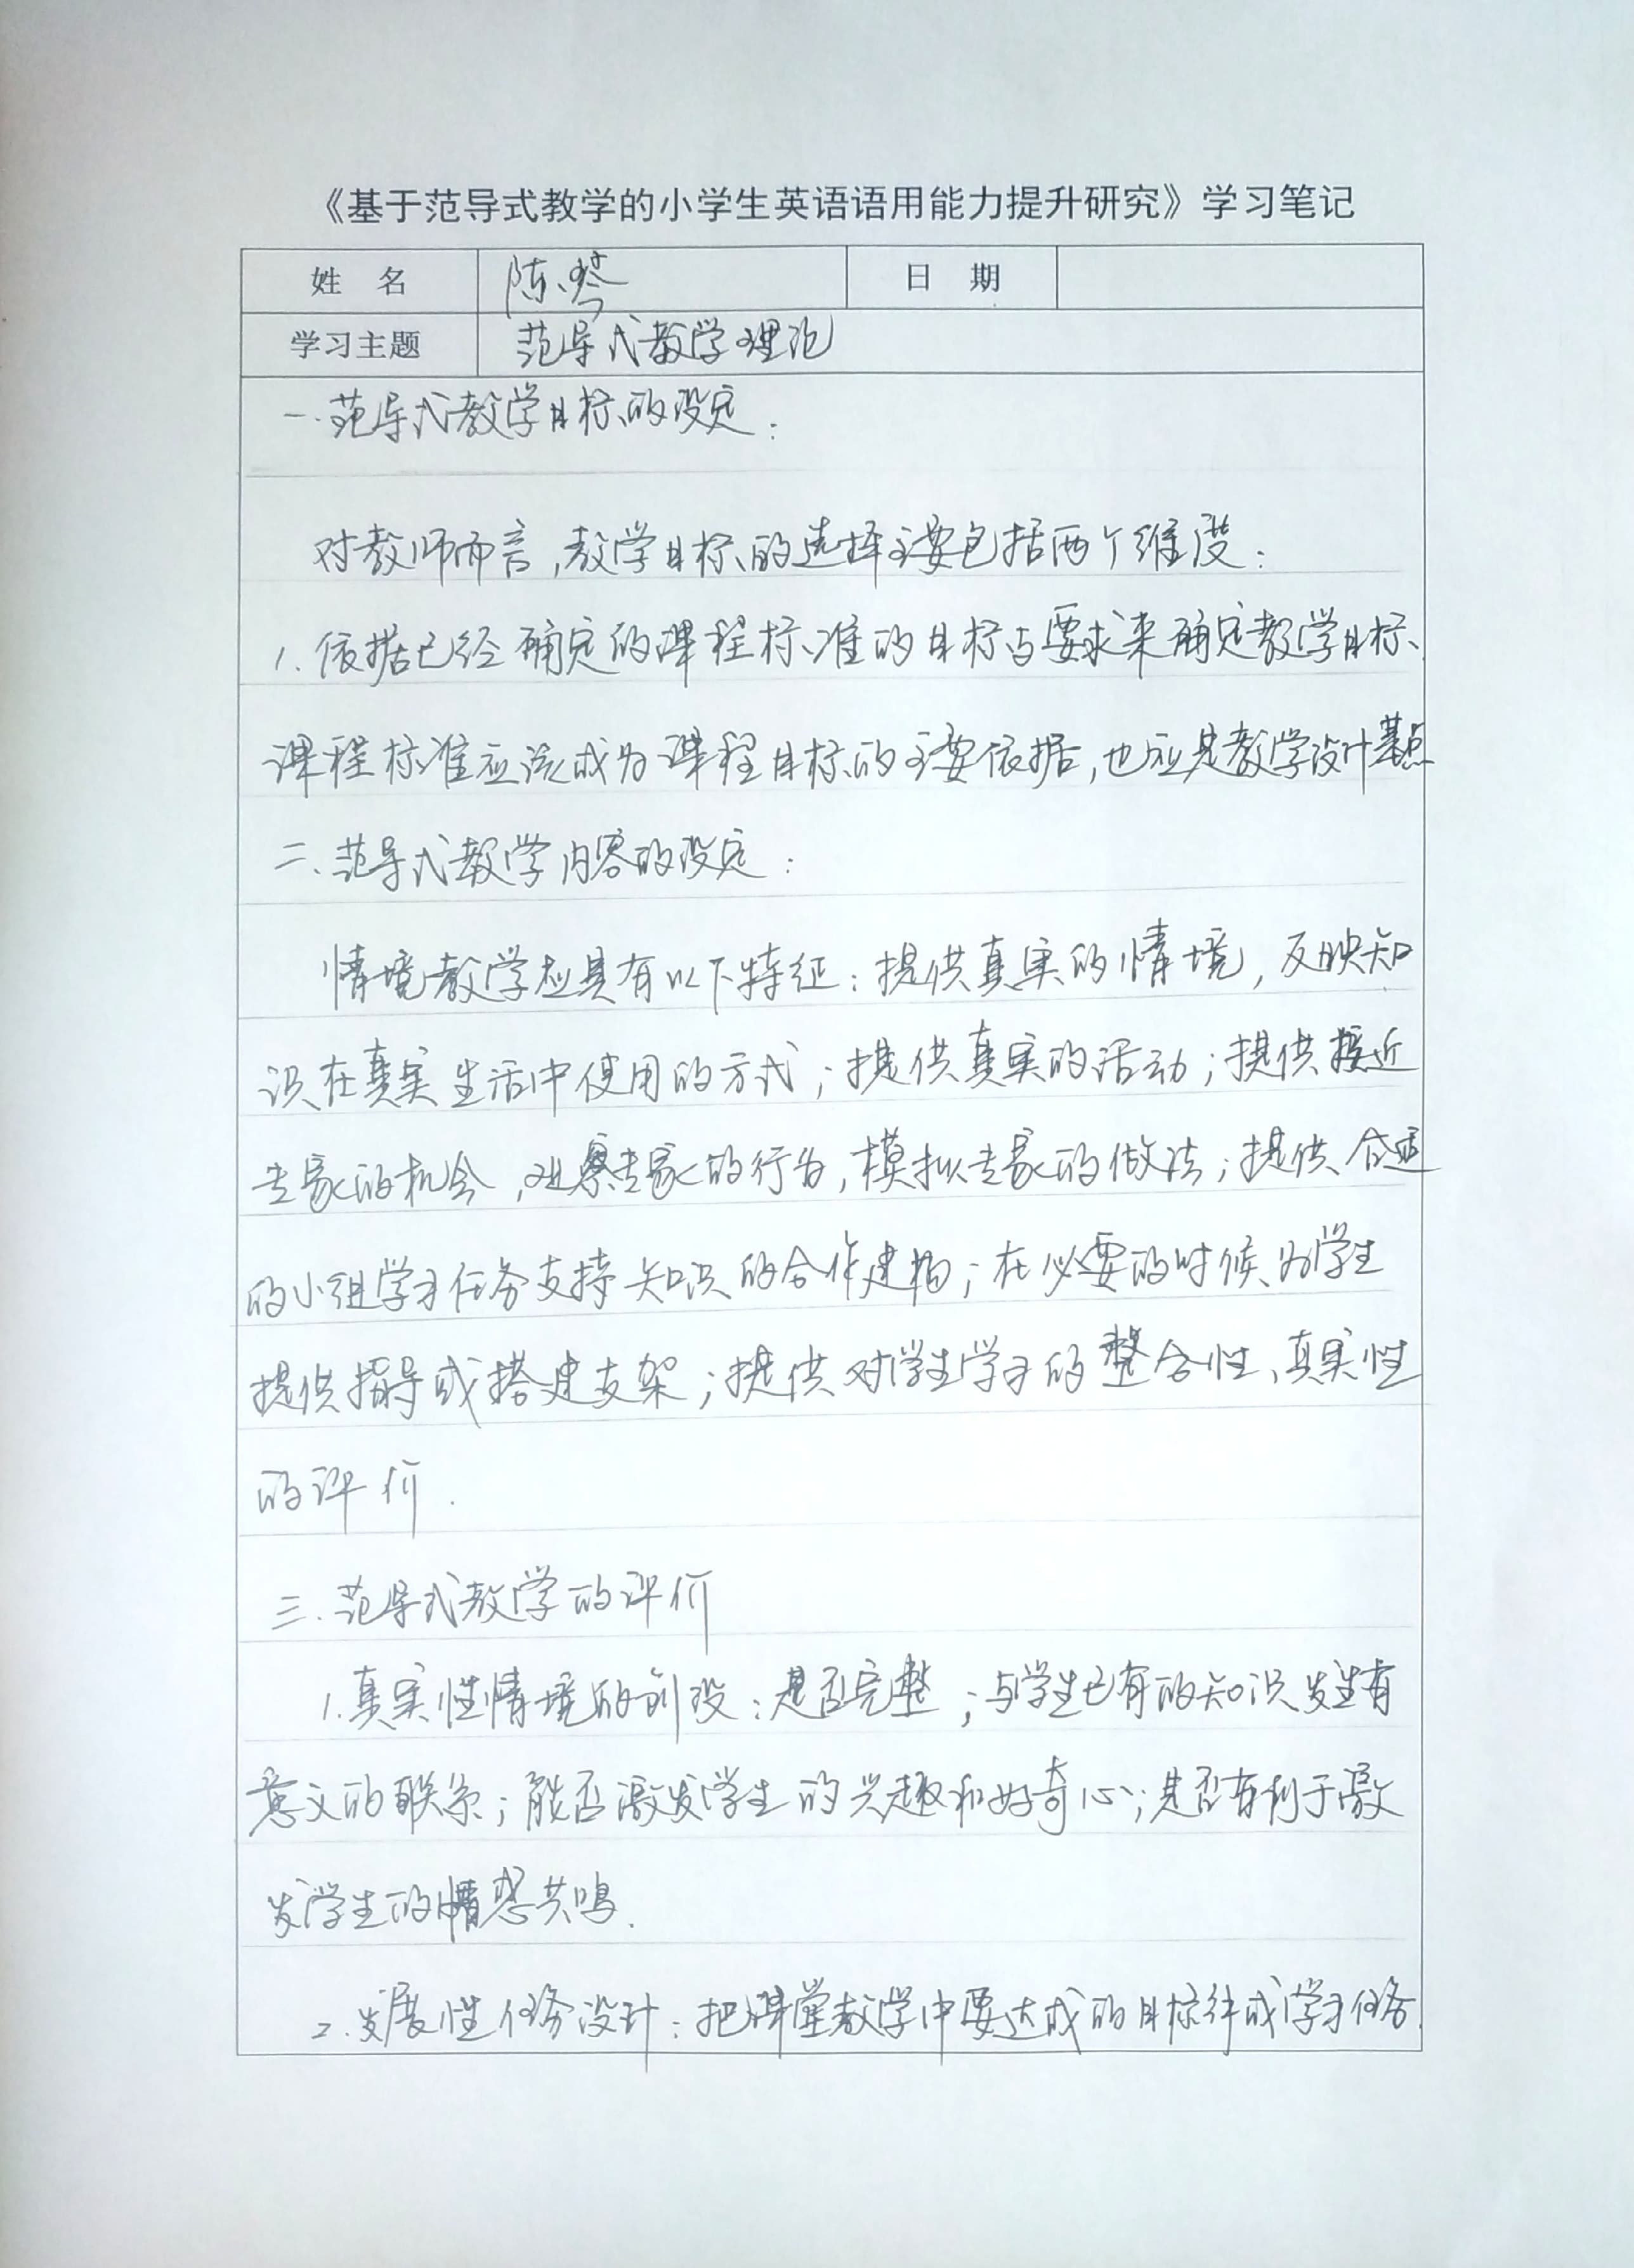 《基于范导式教学的小学生英语语用能力提升研究》学习笔记
姓 名 陈琴 日 期
学习主题 范导式教学理论
一.范导式教学目标的设定：
对教师而言，教学目标的选择主要包括两个维度：
1.依据已经确定的课程标准的目标与要求来确定教学目标、
课程标准应该成为课程目标的主要依据，也应是教学设计基点
二、范导式教学内容的设定：
情境教学应具有以下特征：提供真实的情境，反映知
识在真实生活中使用的方式；提供真实的活动；提供接近
专家的机会，观察专家的行为，模拟专家的做法；提供合适
的小组学习任务支持知识的合作建构；在必要的时候为学生
提供指导或搭建支架；提供对学生学习的整合性、真实性
的评价.
三.范导式教学的评价
1.真实性情境的创设：是否完整；与学生已有的知识发生有
意义的联系；能否激发学生的兴趣和好奇心；是否有利于激
发学生的情感共鸣.
2.发展性任务设计：把课堂教学中要达成的目标转成学习任务.